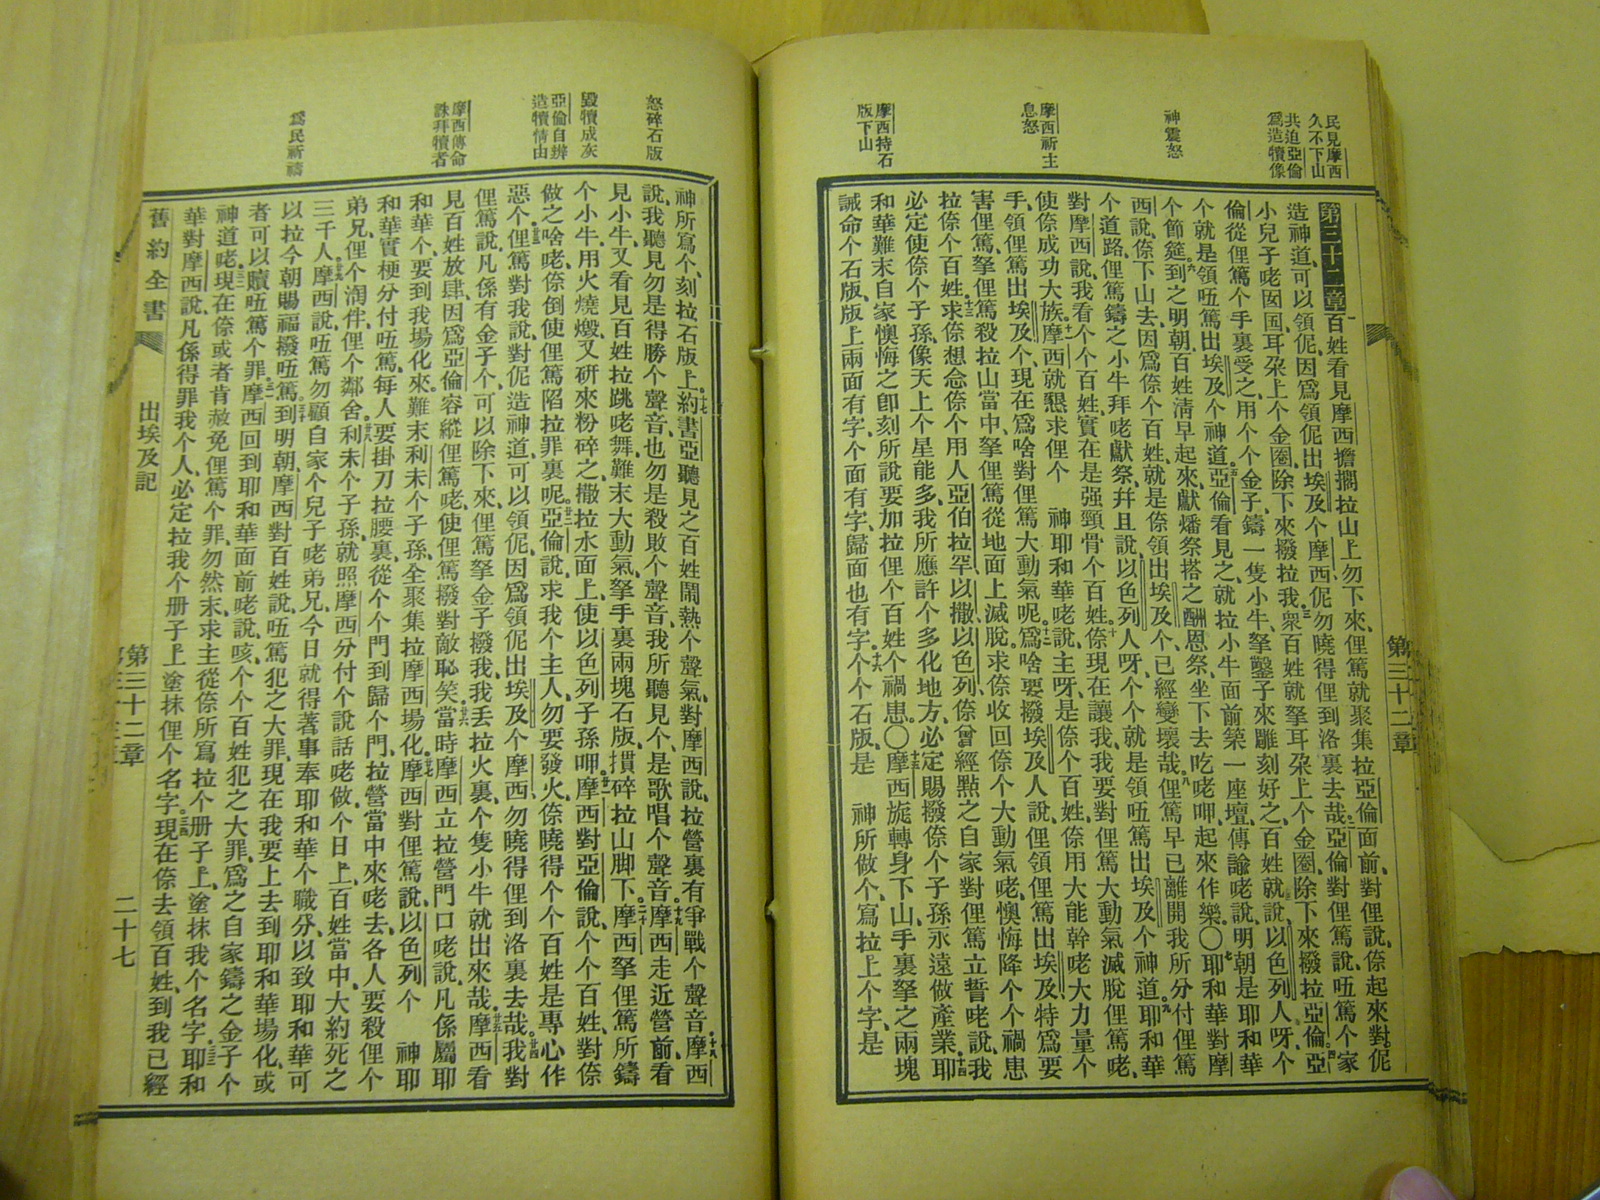 民見摩西
久不下山
共迫亞倫
爲造犢像
神震怒
摩西祈主
息怒
摩西持石
版下山
第三十二章百姓看見摩西擔擱拉山上勿下來、俚篤就聚集拉亞倫面前、對俚說、倷起來對伲
造神道、可以領伲、因爲領伲出埃及个摩西、伲勿曉得俚到洛裏去哉、亞倫對俚篤說、呒篤个家
小兒子咾囡囝、耳朶上个金圈、除下來撥拉我、衆百姓就拏耳朶上个金圈、除下來撥拉亞倫、亞
倫從俚篤个手裏受之、用个个金子、鑄一隻小牛、拏鑿子來雕刻好之、百姓就說、以色列人呀、个
个就是領呒篤出埃及个神道、亞倫看見之、就拉小牛面前、築一座壇、傳諭咾說、明朝是耶和華
个節筵、到之明朝、百姓淸早起來、獻燔祭搭之酬恩祭、坐下去吃咾呷、起來作樂、〇耶和華對摩
西說、倷下山去、因爲倷个百姓、就是倷領出埃及个、已經變壞哉、俚篤早已離開我所分付俚篤
个道路、俚篤鑄之小牛、拜咾獻祭、幷且說、以色列人呀、个个就是領呒篤出埃及个神道、耶和華
對摩西說、我看个个百姓、實在是强頸骨个百姓、倷現在讓我、我要對俚篤大動氣、滅脫俚篤咾、
使倷成功大族、摩西就懇求俚个　神耶和華咾說、主呀、是倷个百姓、倷用大能幹咾大力量个
手、領俚篤出埃及个、現在爲啥對俚篤大動氣呢、爲啥要撥埃及人說、俚領俚篤出埃及、特爲要
害俚篤、拏俚篤殺拉山當中、拏俚篤從地面上滅脫、求倷收回倷个大動氣咾、懊悔降个个禍患
拉倷个百姓、求倷想念倷个用人亞伯拉罕以撒以色列、倷曾經點之自家對俚篤立誓咾說、我
必定使倷个子孫、像天上个星能多、我所應許个多化地方、必定賜撥倷个子孫永遠做產業、耶
和華難末自家懊悔之卽刻所說要加拉俚个百姓个禍患、〇摩西旋轉身下山、手裏拏之兩塊
誡命个石版、版上兩面有字、个面有字、歸面也有字、个个石版、是　神所做个、寫拉上个字、是
怒碎石版
毀犢成灰
亞倫自辨
造犢情由
摩西傳命
誅拜犢者
爲民祈禱
神所寫个、刻拉石版上、約書亞聽見之百姓鬧熱个聲氣、對摩西說、拉營裏有爭戰个聲音、摩西
說、我聽見勿是得勝个聲音、也勿是殺敗个聲音、我所聽見个是歌唱个聲音、摩西走近營前、看
見小牛、又看見百姓拉跳咾舞、難末大動氣、拏手裏兩塊石版、摜碎拉山脚下、摩西拏俚篤所鑄
个小牛、用火燒燬、又研來粉碎之、撒拉水面上、使以色列子孫呷、摩西對亞倫說、个个百姓、對倷
做之啥咾、倷倒使俚篤陷拉罪裏呢、亞倫說、求我个主人、勿要發火、倷曉得个个百姓是專心作
惡个、俚篤對我說、對伲造神道可以領伲、因爲領伲出埃及个摩西、勿曉得俚到洛裏去哉、我對
俚篤說、凡係有金子个、可以除下來、俚篤拏金子撥我、我丟拉火裏、个隻小牛就出來哉、摩西看
見百姓放肆、因爲亞倫容縱俚篤咾、使俚篤撥對敵恥笑、當時摩西立拉營門口咾說、凡係屬耶
和華个、要到我場化來、難末利未个子孫、全聚集拉摩西場化、摩西對俚篤說、以色列个　神耶
和華實梗分付呒篤、每人要掛刀拉腰裏、從个个門到歸个門、拉營當中來咾去、各人要殺俚个
弟兄、俚个淘伴、俚个鄰舍、利未个子孫就照摩西分付个說話咾做、个日上百姓當中、大約死之
三千人、摩西說、呒篤勿顧自家个兒子咾弟兄、今日就得著事奉耶和華个職分、以致耶和華可
以拉今朝賜福撥呒篤、到明朝、摩西對百姓說、呒篤犯之大罪、現在我要上去到耶和華場化、或
者可以贖呒篤个罪、摩西回到耶和華面前咾說、咳、个个百姓犯之大罪、爲之自家鑄之金子个
神道咾、現在倷或者肯赦免俚篤个罪、勿然末、求主從倷所寫拉个册子上、塗抹我个名字、耶和
華對摩西說、凡係得罪我个人、必定拉我个册子上塗抹俚个名字、現在倷去領百姓、到我已經
舊約全書
出埃及記
第三十二章
二十七
第三十二章